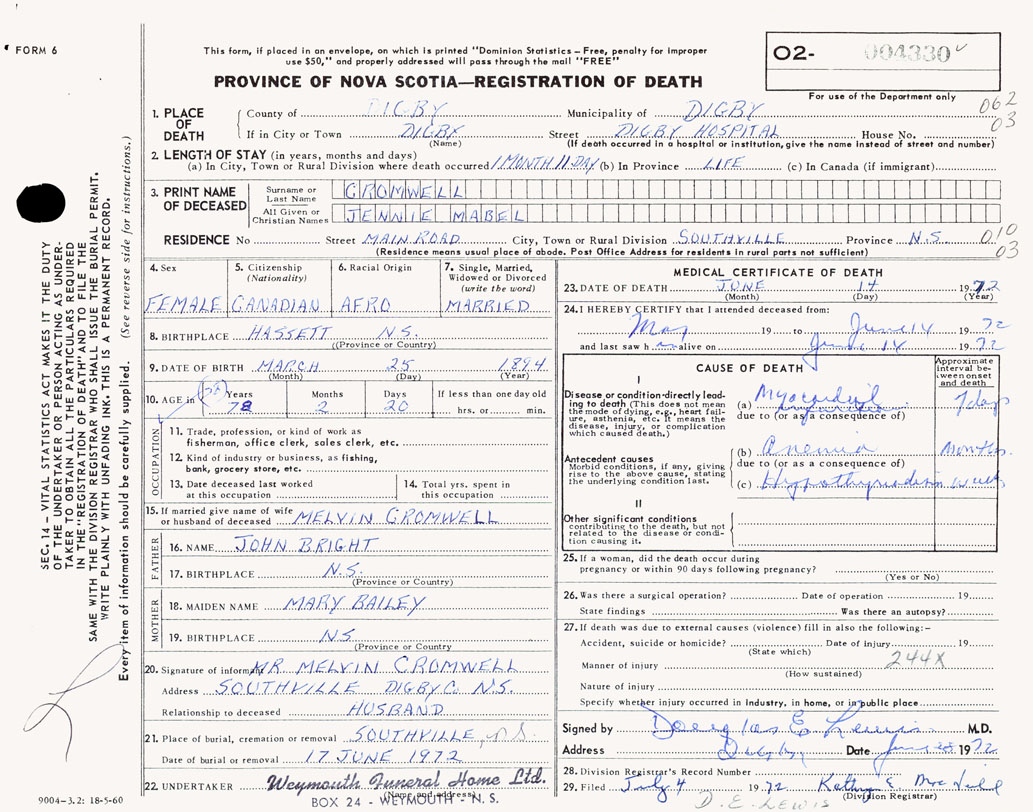 FORM 6
This form, if placed in an envelope, on which is printed "Dominion Statistics – Free, penalty for improper
use $50," and properly addressed will pass through the mail "FREE"
PROVINCE OF NOVA SCOTIA—REGISTRATION OF DEATH
O2- 004330
For use of the Department only
062
03
1. PLACE OF DEATH
County of DIGBY Municipality of DIGBY
If in City or Town DIGBY Street DIGBY HOSPITAL House No.
(Name) (If death occurred in a hospital or institution, give the name instead of street and number)
2. LENGTH OF STAY (in years, months and days)
(a) In City, Town or Rural Division where death occurred 1 MONTH 11 DAY (b) In Province LIFE (c) In Canada (if immigrant)
3. PRINT NAME OF DECEASED
Surname or Last Name CROMWELL
All Given or Christian Names JENNIE MABEL
RESIDENCE No Street MAIN ROAD City, Town or Rural Division SOUTHVILLE Province N.S. 010
(Residence means usual place of abode. Post Office Address for residents in rural parts not sufficient) 03
4. Sex FEMALE
5. Citizenship (Nationality) CANADIAN
6. Racial Origin AFRO
7. Single, Married, Widowed or Divorced (write the word) MARRIED
8. BIRTHPLACE HASSETT N.S.
(Province or Country)
9. DATE OF BIRTH MARCH 25 1894
(Month) (Day) (Year)
10. AGE in Years Months Days If less than one day old
78 2 20 hrs. or min.
OCCUPATION
11. Trade, profession, or kind of work as
fisherman, office clerk, sales clerk, etc.
12. Kind of industry or business, as fishing,
bank, grocery store, etc.
13. Date deceased last worked
at this occupation
14. Total yrs. spent in
this occupation
15. If married give name of wife
or husband of deceased MELVIN CROMWELL
FATHER
16. NAME JOHN BRIGHT
17. BIRTHPLACE N.S.
(Province or Country)
MOTHER
18. MAIDEN NAME MARY BAILEY
19. BIRTHPLACE NS
(Province or Country
20. Signature of informant MR MELVIN CROMWELL
Address SOUTHVILLE DIGBY CO. N.S.
Relationship to deceased HUSBAND
21. Place of burial, cremation or removal SOUTHVILLE, N.S.
Date of burial or removal 17 JUNE 1972
22. UNDERTAKER Weymouth Funeral Home Ltd.
(Name and address)
BOX 24 - WEYMOUTH - N. S.
MEDICAL CERTIFICATE OF DEATH
23. DATE OF DEATH JUNE 14 1972
(Month) (Day) (Year)
24. I HEREBY CERTIFY that I attended deceased from:
May 19 to June 14 1972
and last saw her alive on June 14 1972
CAUSE OF DEATH
Approximate interval between onset and death
I
Disease or condition directly leading to death (This does not mean the mode of dying, e.g., heart failure, asthenia, etc. It means the disease, injury, or complication which caused death.)
(a) Myocardial 7 days
due to (or as a consequence of)
Antecedent causes
Morbid conditions, if any, giving rise to the above cause, stating the underlying condition last.
(b) Anemia months
due to (or as a consequence of)
(c) Hypothyroidism
II
Other significant conditions
contributing to the death, but not related to the disease or condition causing it.
25. If a woman, did the death occur during
pregnancy or within 90 days following pregnancy?
(Yes or No)
26. Was there a surgical operation? Date of operation 19
State findings Was there an autopsy?
27. If death was due to external causes (violence) fill in also the following:–
Accident, suicide or homicide? Date of injury 19
(State which)
Manner of injury 244X
(How sustained)
Nature of injury
Specify whether injury occurred in Industry, in home, or in public place
Signed by Douglas E Lewis M.D.
Address Digby Date June 28 1972
28. Division Registrar's Record Number
29. Filed July 4 1972
(Division Registrar)
D. E. LEWIS
SEC. 14 – VITAL STATISTICS ACT MAKES IT THE DUTY
OF THE UNDERTAKER OR PERSON ACTING AS UNDER-
TAKER TO OBTAIN ALL THE PARTICULARS REQUIRED
IN THE "REGISTRATION OF DEATH" AND TO FILE THE
SAME WITH THE DIVISION REGISTRAR WHO SHALL ISSUE THE BURIAL PERMIT.
WRITE PLAINLY WITH UNFADING INK. THIS IS A PERMANENT RECORD.
Every item of information should be carefully supplied. (See reverse side for instructions.)
9004-3.2: 18-5-60